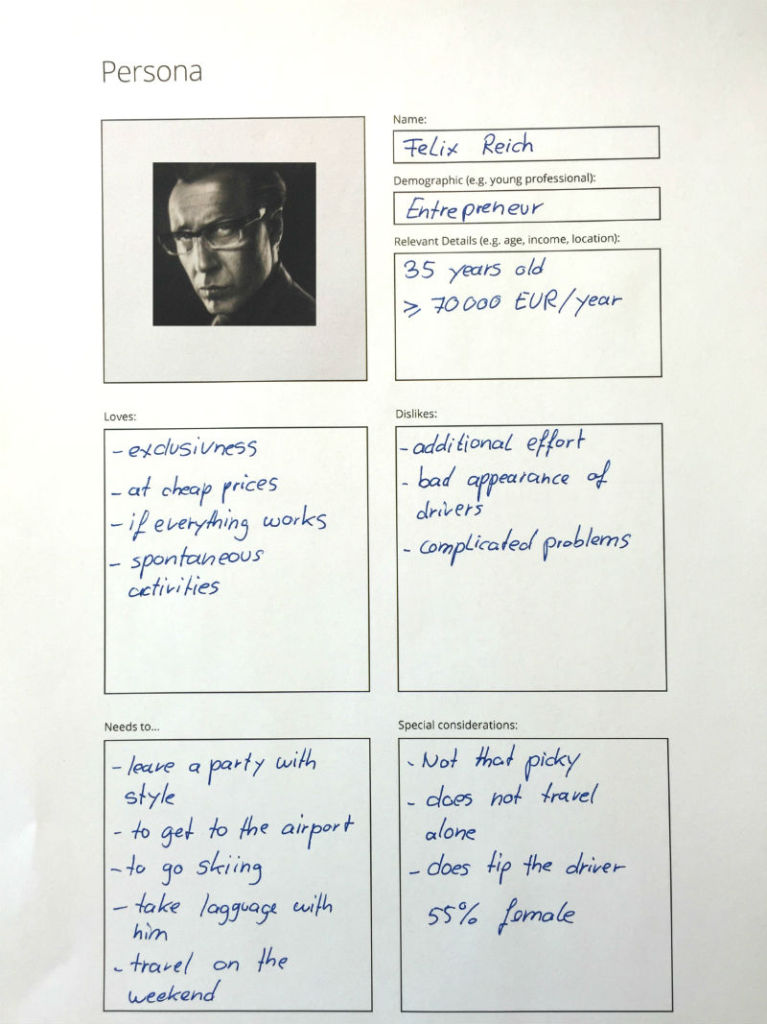 Persona
Name:
Felix Reich
Demographic (e.g. young professional):
Entrepreneur
Relevant Details (e.g. age, income, location):
35 years old
≥ 70000 EUR/year
Loves:
- exclusivness
- at cheap prices
- if everything works
- spontaneous
activities
Dislikes:
- additional effort
- bad appearance of
drivers
- complicated problems
Needs to...
- leave a party with
style
- to get to the airport
- to go skiing
- take lagguage with
him
- travel on the
weekend
Special considerations:
- Not that picky
- does not travel
alone
- does tip the driver
55% female